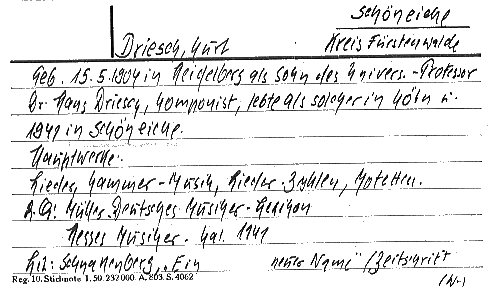 Schöneiche
Driesch, Kurt
Kreis Fürstenwalde
Geb. 15.5.1904 in Heidelberg als Sohn des Univers.-Professor
Dr. Hans Driesch, Komponist, lebte als solcher in Köln u.
1941 in Schöneiche.
Hauptwerke.
Lieder, Kammer-Musik, Lieder-Zyklen, Motetten.
Müller Deutsches Musiker-Lexikon
Hesses Musiker-Kal. 1941
Lit: Schnackenberg, "Ein neuer Name" /Zeitschrift
Reg. 10. Stichnote 1. 50. 232000. A. 803. S. 4062